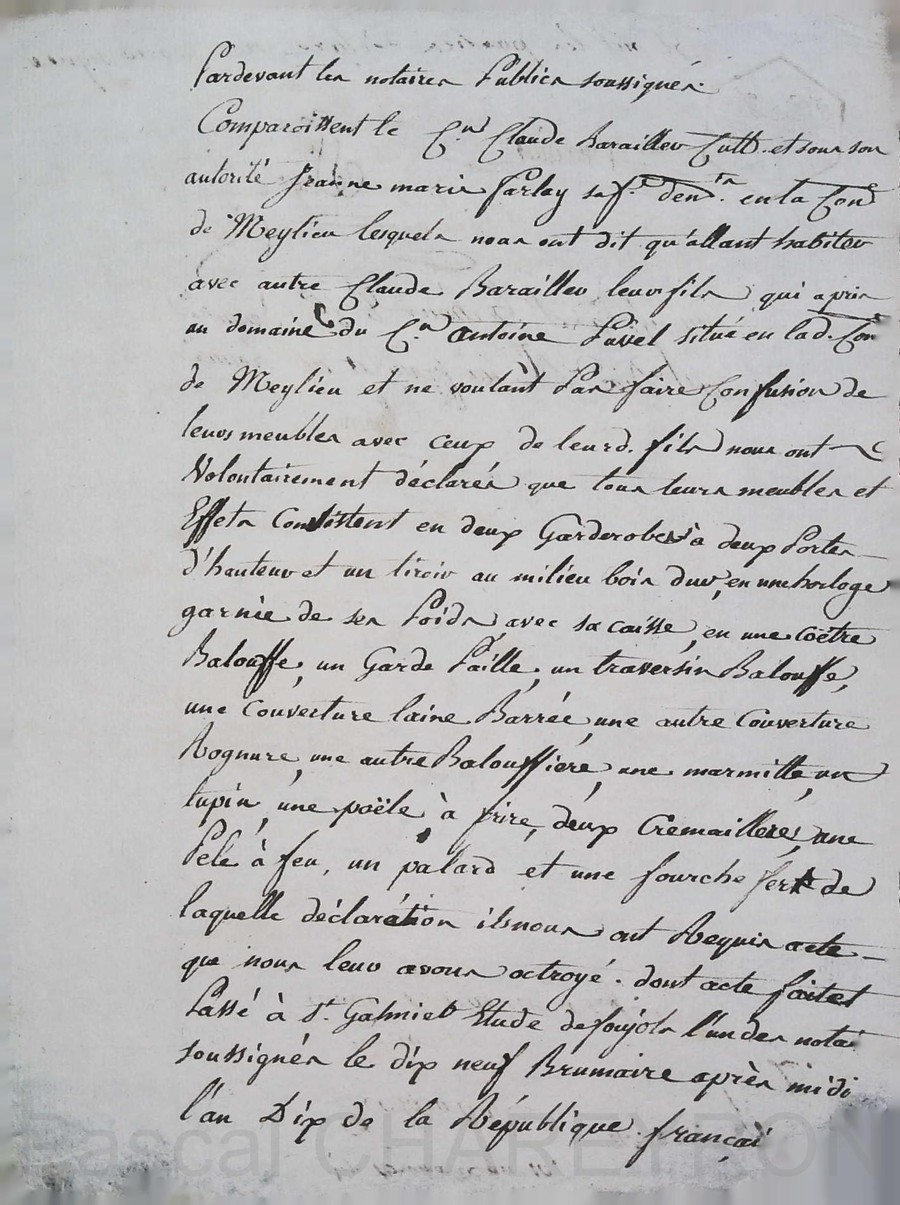 Pardevant les notaires Publics soussignés
Comparoissent le C.en Claude Barailler Cult. et sous son
autorité Jeanne marie Parlay sa f.e dem.ts en la Con.e
de Meylieu lesquels nous ont dit qu'allant habiter
avec autre Claude Barailler leur fils qui a pris
un domaine du C.en antoine Pavel situé en lad. Con.
de Meylieu et ne voulant Pas faire Confusion de
leurs meubles avec ceux de leurd. fils nous ont
Volontairement déclarés que tous leurs meubles et
Effets Consistent en deux Garderobes à deux Portes
d'hauteur et un tiroir au milieu bois dur, en une horloge
garnie de ses Poids avec sa caisse, en une coëtre
Balouffe, un Garde Paille, un traversin Balouffe,
une Couverture laine Barrée, une autre Couverture
Rognure, une autre Balouffière, une marmitte, un
tupin, une poële à frire, deux Cremaillères, une
Pele à feu, un palard et une fourche fer de
laquelle déclaration ils nous ont Requis acte
que nous leur avons octroyé. dont acte fait et
Passé à S.t Galmier Etude de foujols l'un des notai
soussignés le dix neuf Brumaire après midi
l'an Dix de la République françai
Pascal CHARETTRON